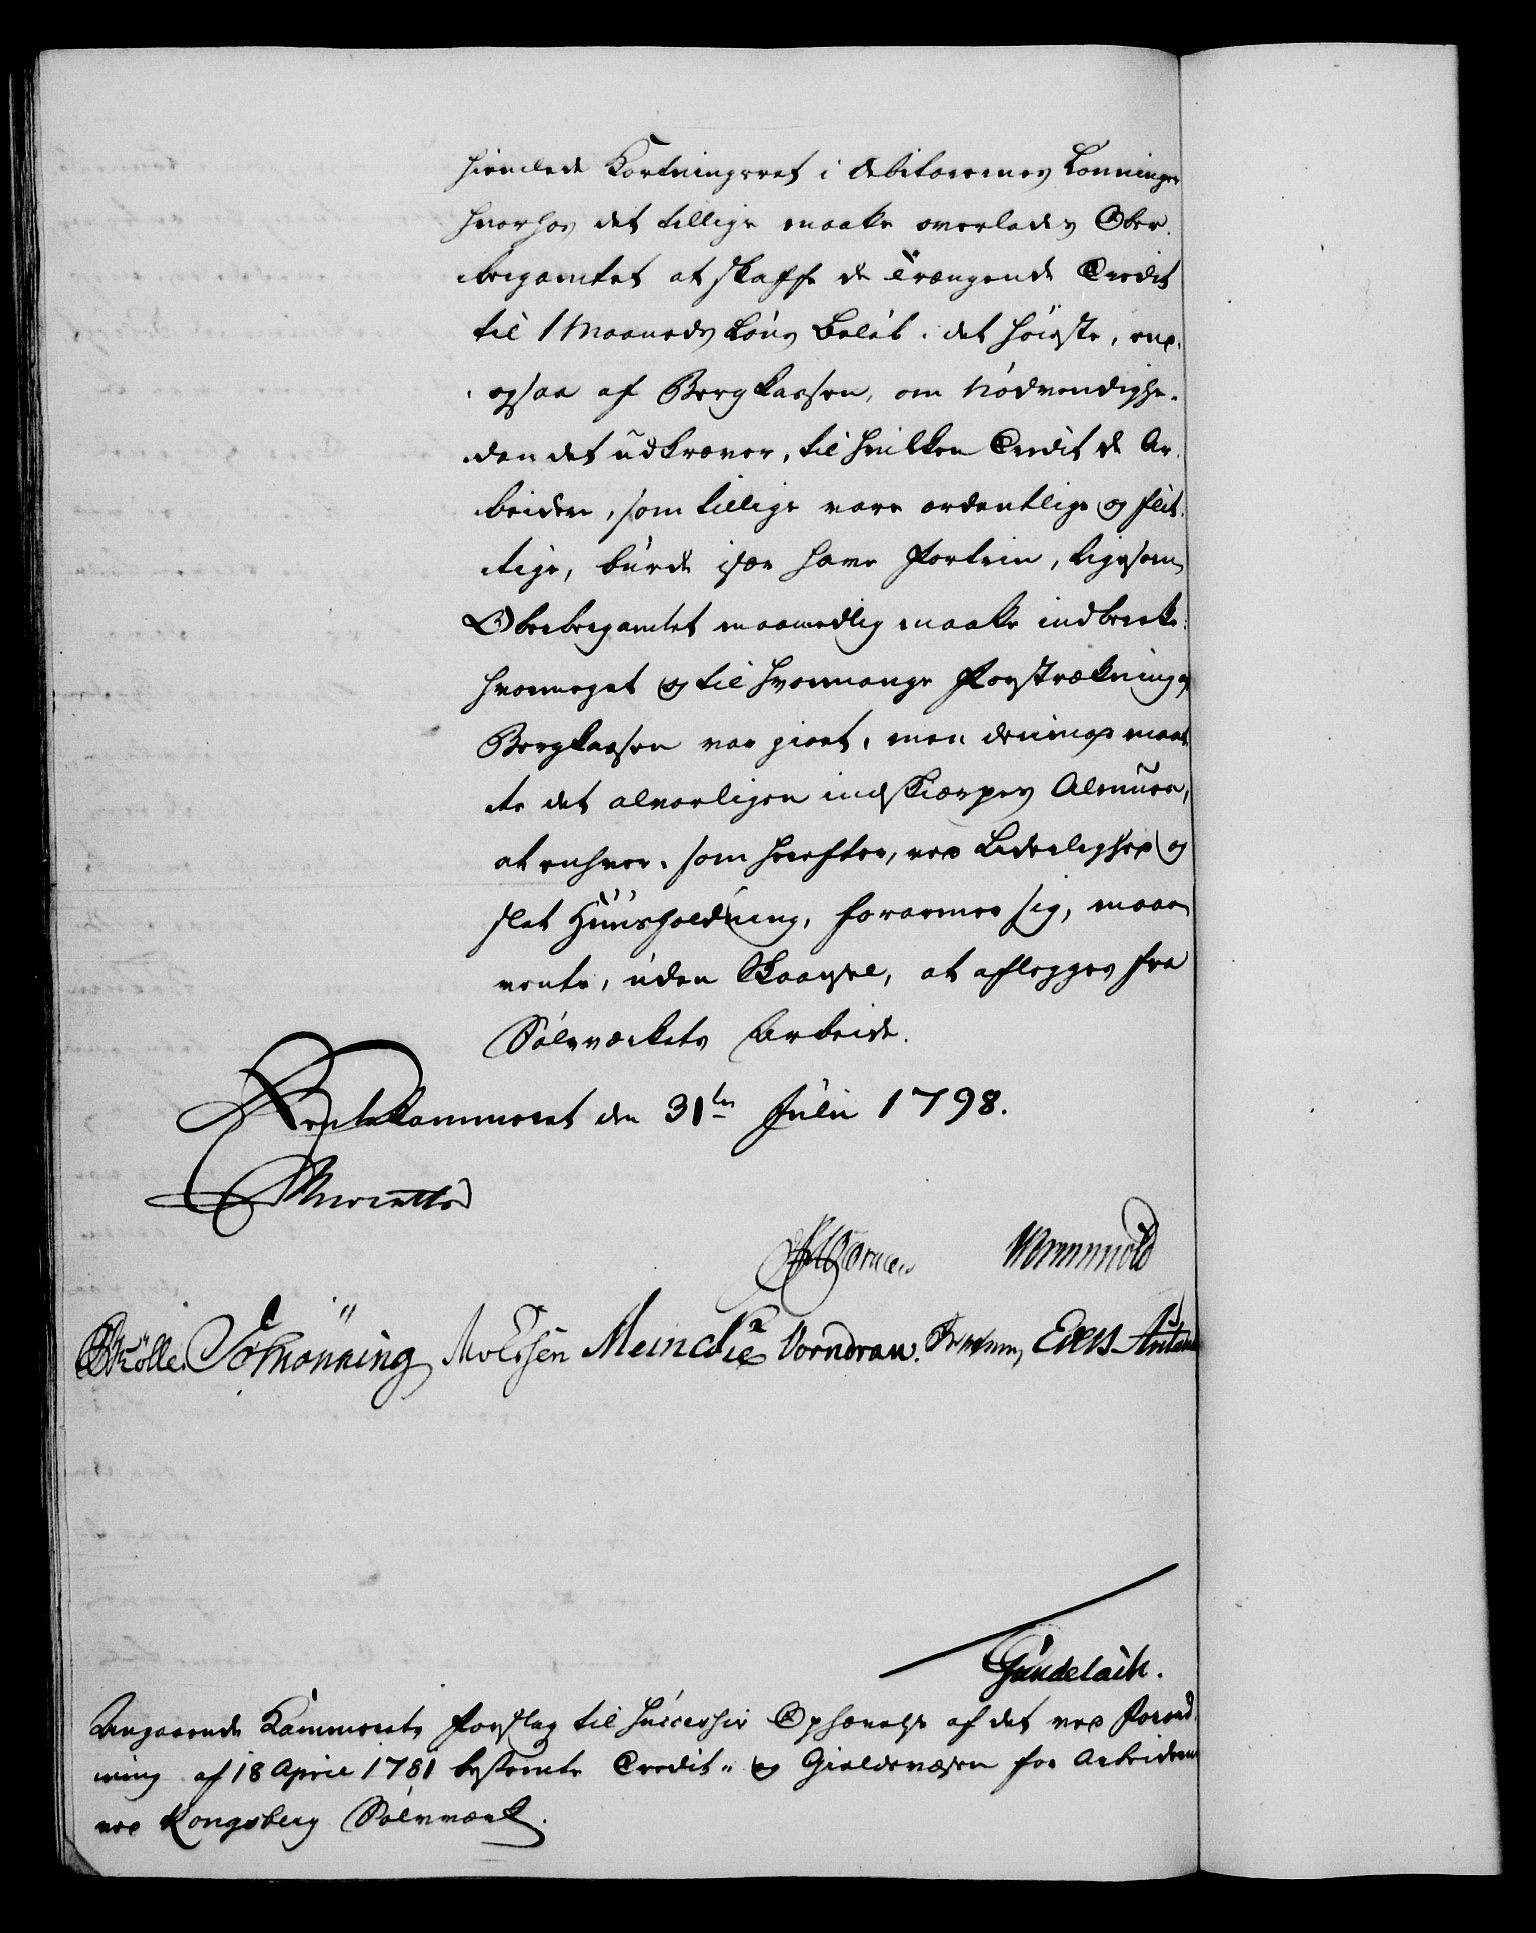 hiemlede Kortningsret i Debitorernes Lønninger
hvorhos det tillige maatte overlades Ober-
bergamtet at skaffe de Trængende Credit
til 1 Maaneds Løns Beløb i det høieste, end-
ogsaa af Bergkassen, om Nødvendighe-
den det udkræver, til hvilken Credit de Ar-
beidere, som tillige vare ordentlige og flit-
tige, burde især have Fortrin, ligesom
Oberbergamtet maanedlig maatte indberette
hvormeget og til hvormange Forstrækning af
Bergkassen var giort, men derimod maat-
te det alvorligen indskiærpes Almuen,
at enhver, som herefter, ved Liderlighed og
slet Huusholdning, forarmer sig, maae
vente, uden Skaansel, at aflægges fra
Sølvværkets Arbeide.
Rentekammeret den 31te Julii 1798.
Reventlow
Wormskiold
Schønning Meinche Vorndran.
Gundelach.
Angaaende Kammerets Forslag til successiv Ophævelse af det ved Forord-
ning af 18 April 1781 bestemte Credit- og Gieldsvæsen for Arbeiderne
ved Kongsberg Sølvværk.